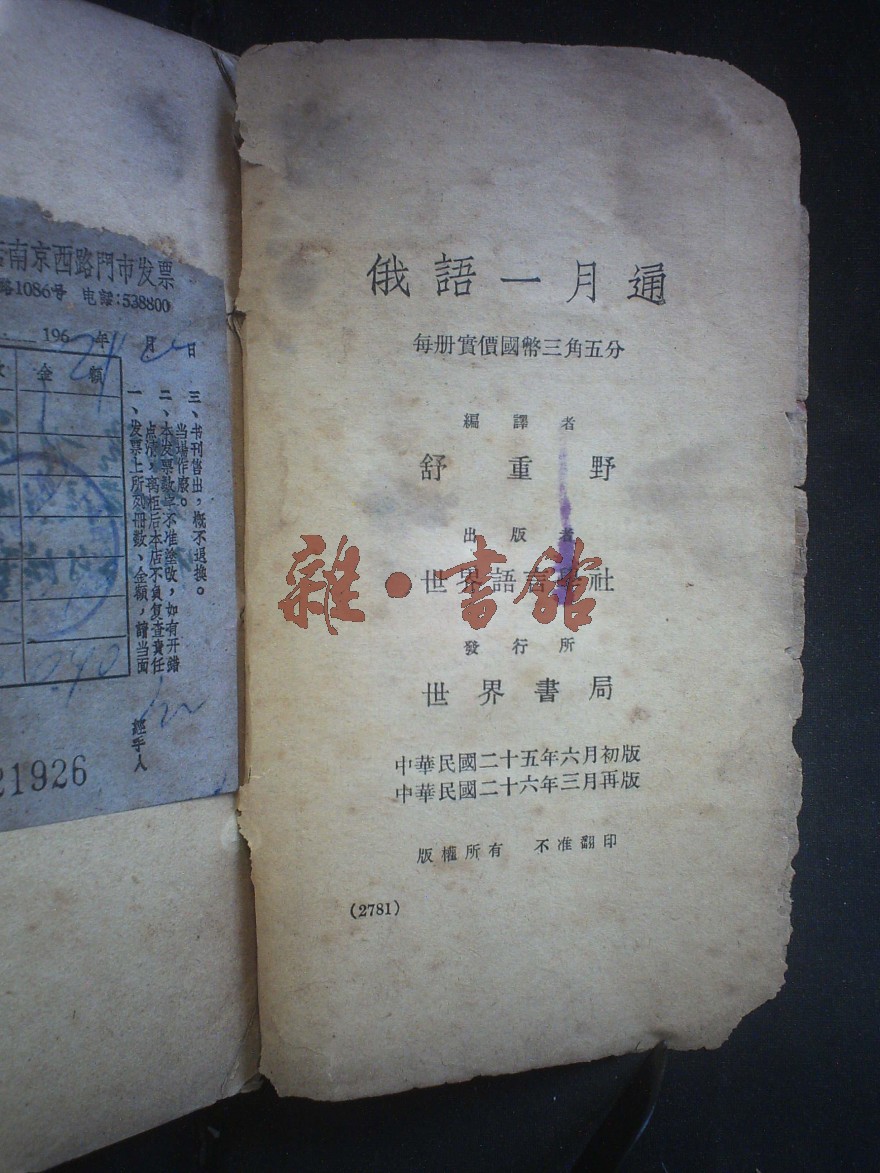 南京西路門市发票
路1086号 电話:538800
196 年 月 日
金額
三、书刊售出，概不退换。
二、本发票数字不准塗改，如有开錯
当場作废。
一、发票上所列冊数、金額，請当面
点清，离柜后本店不負复查責任
0.40
經手人
21926
俄語一月通
每册實價國幣三角五分
編譯者
舒重野
出版者
世界語言學社
雜·書館
發行所
世界書局
中華民國二十五年六月初版
中華民國二十六年三月再版
版權所有 不准翻印
(2781)